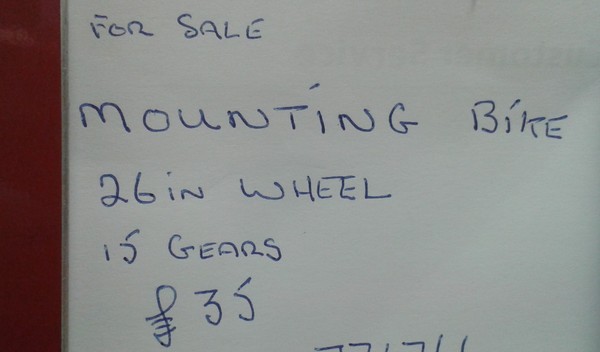 FOR SALE
MOUNTING BIKE
26in WHEEL
15 GEARS
£35